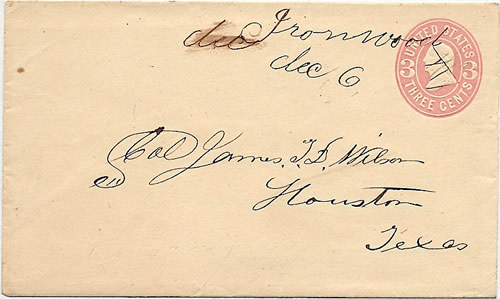 Ironwood
dec
dec 6
UNITED STATES
3 3
THREE CENTS
Col James. T. D. Wilson
Houston
Texas